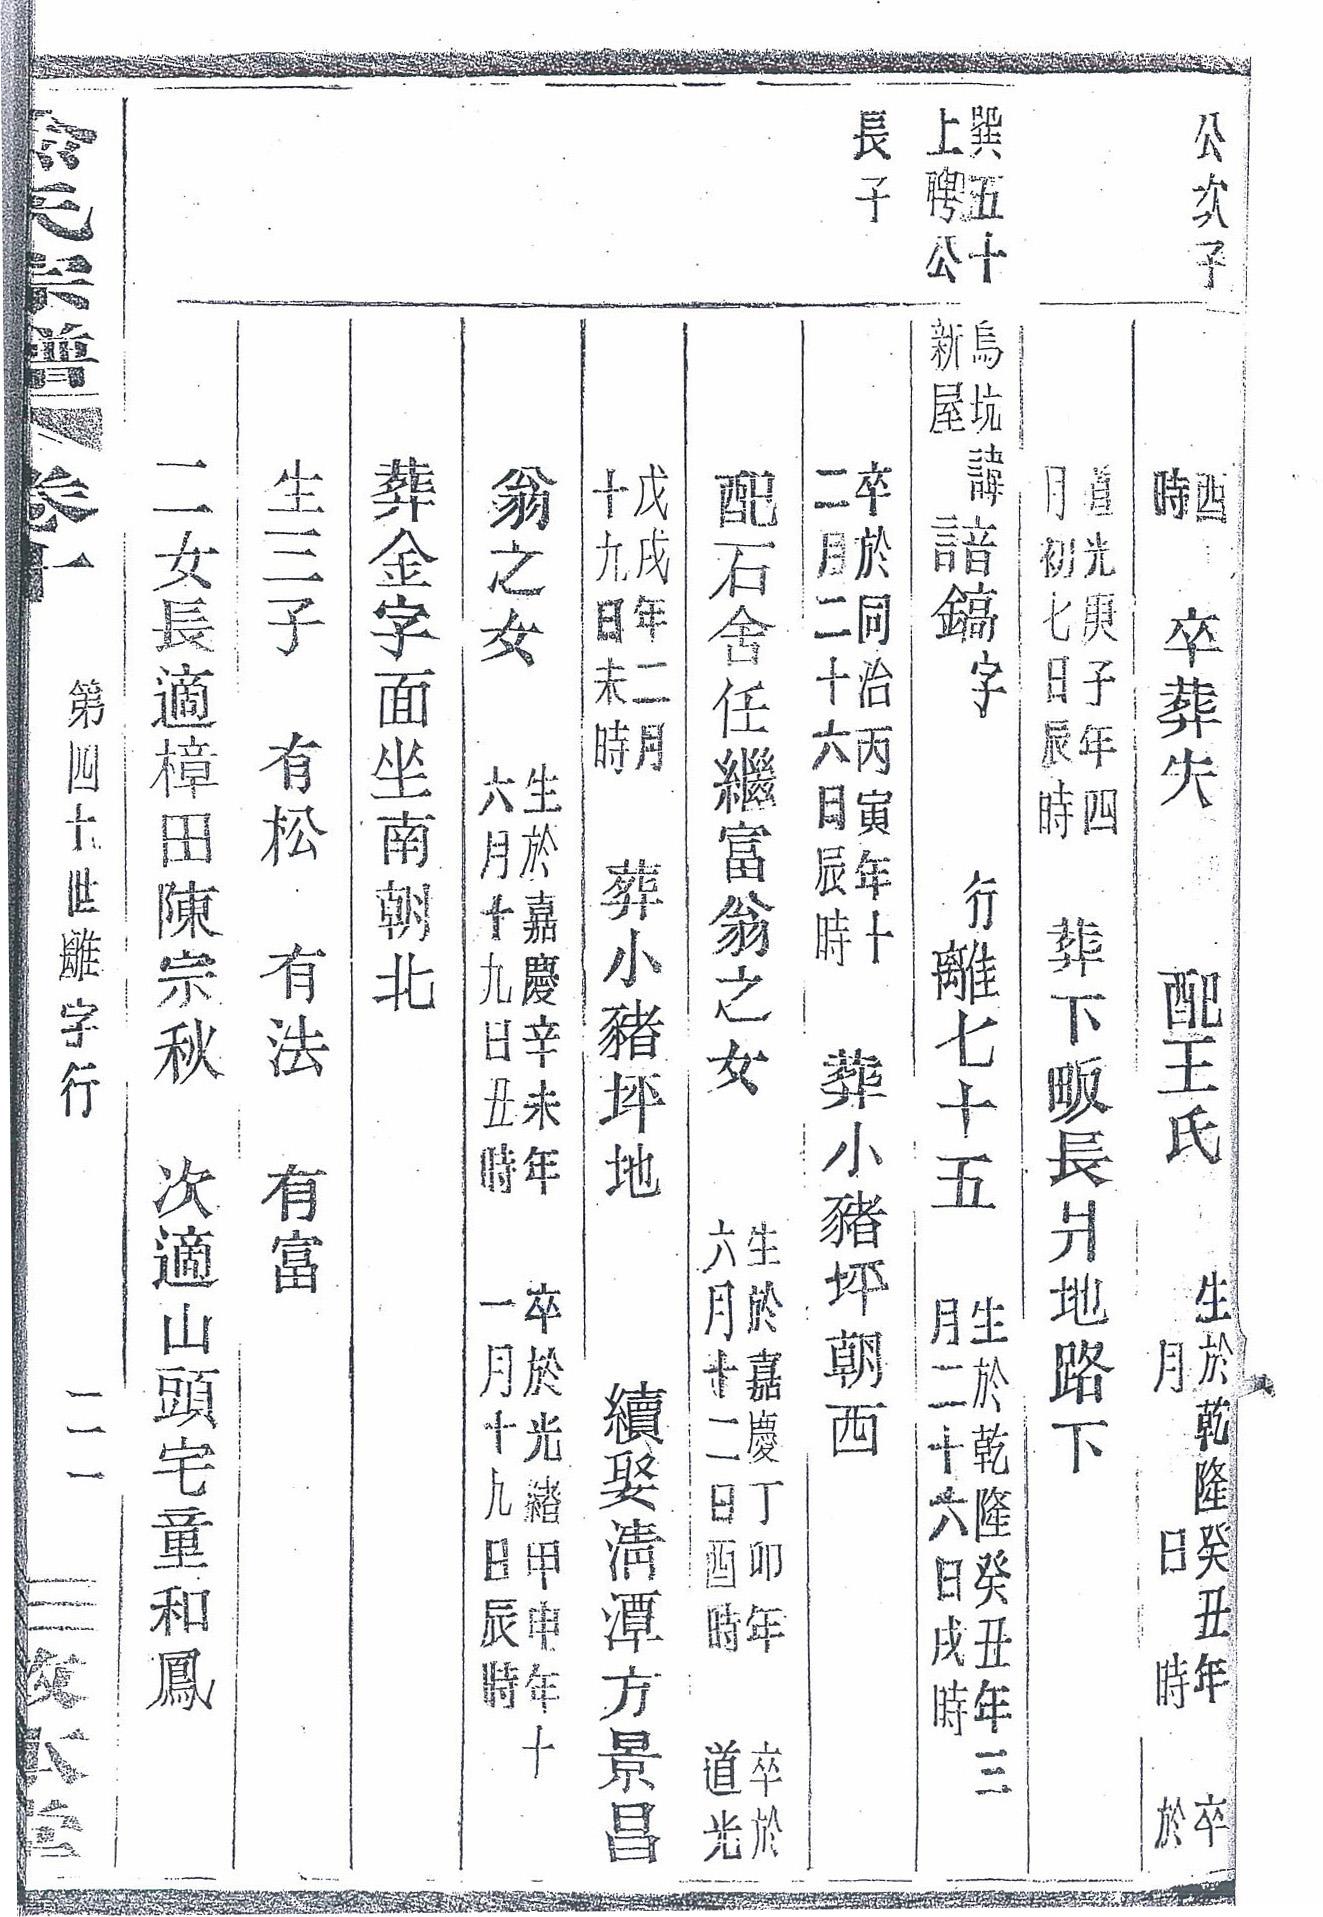 公次子
酉時 卒葬失 配王氏 生於乾隆癸丑年 月 日 時 卒於
道光庚子年四月初七日辰時 葬下畈長爿地路下
巽五十上聘公長子
烏坑新屋 諱諳鎬 字 行離七十五 生於乾隆癸丑年三月二十六日戌時
卒於同治丙寅年十二月二十六日辰時 葬小豬坪朝西
配石舍任繼富翁之女 生於嘉慶丁卯年六月十二日酉時 卒於道光
戊戌年二月十九日未時 葬小豬坪地 續娶淸潭方景昌
翁之女 生於嘉慶辛未年六月十九日丑時 卒於光緒甲申年十一月十九日辰時
葬金字面坐南朝北
生三子 有松 有法 有富
二女長適樟田陳宗秋 次適山頭宅童和鳳
氏宗譜 卷十一 第四十世離字行 二一 本堂